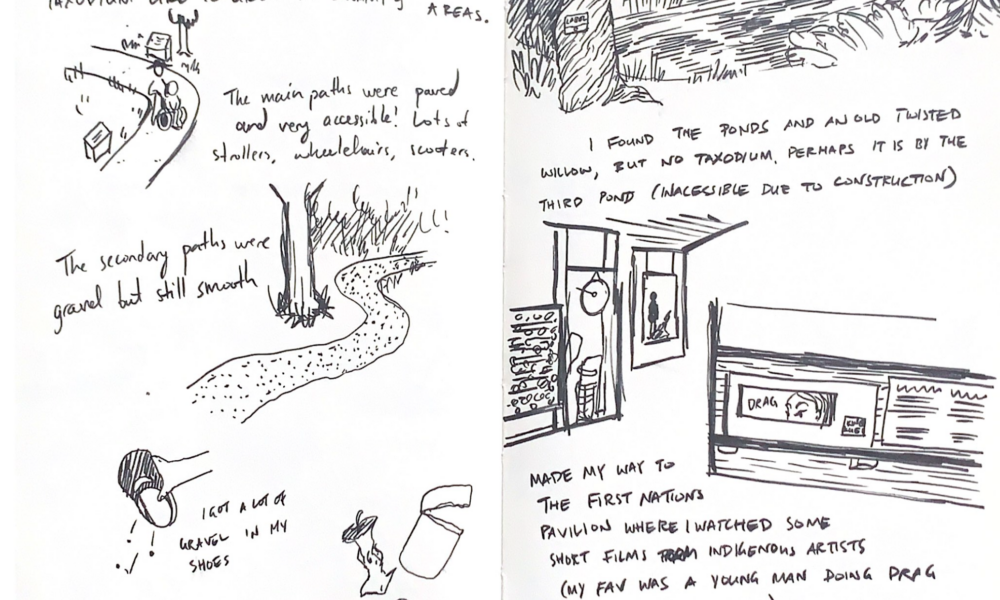 AREAS.
The main paths were paved
and very accessible! Lots of
strollers, wheelchairs, scooters.
The secondary paths were
gravel but still smooth
I GOT A LOT OF
GRAVEL IN MY
SHOES
LABEL
I FOUND THE PONDS AND AN OLD TWISTED
WILLOW, BUT NO TAXODIUM. PERHAPS IT IS BY THE
THIRD POND (INACESSIBLE DUE TO CONSTRUCTION)
DRAG
MADE MY WAY TO
THE FIRST NATIONS
PAVILION WHERE I WATCHED SOME
SHORT FILMS FROM INDIGENOUS ARTISTS
(MY FAV WAS A YOUNG MAN DOING DRAG